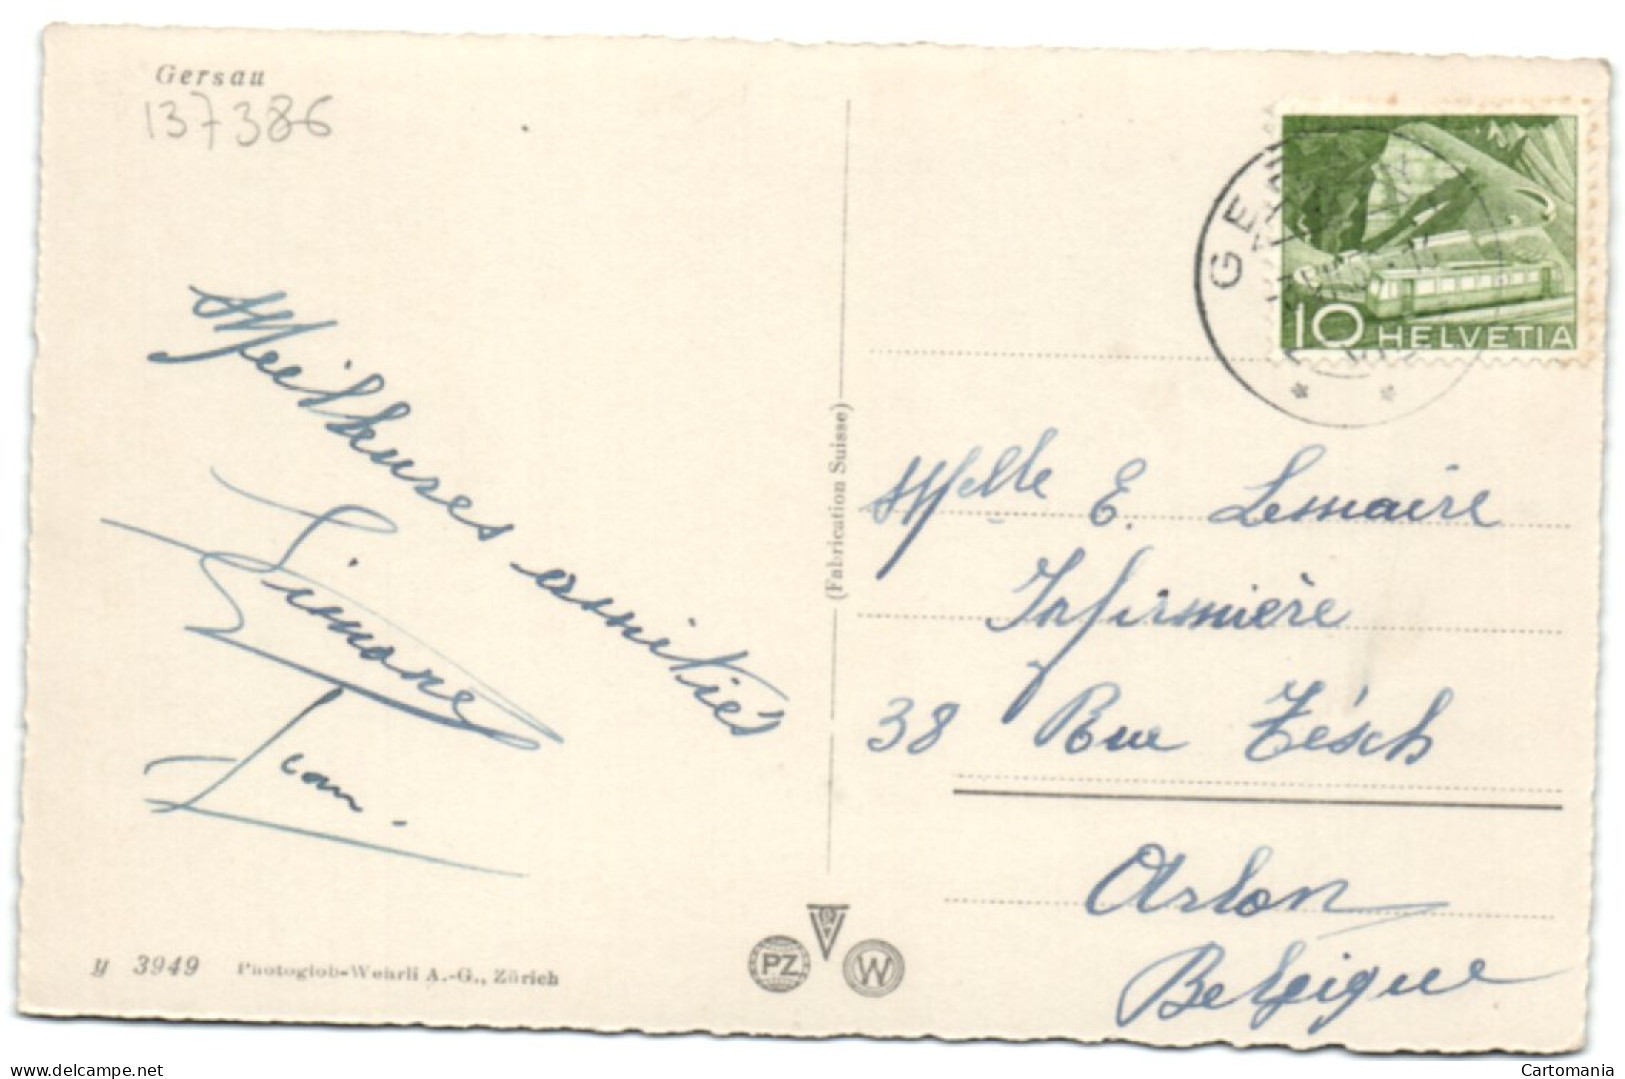 Gersau
137386
Meilleures amitiés
Simone
Jean.
(Fabrication Suisse)
10 HELVETIA
Melle E. Lemaire
Infirmière
38 Rue Tésch
Arlon
Belgique
PZ
W
y 3949 Photoglob-Wehrli A.-G., Zürich
Cartomania
delcampe.net